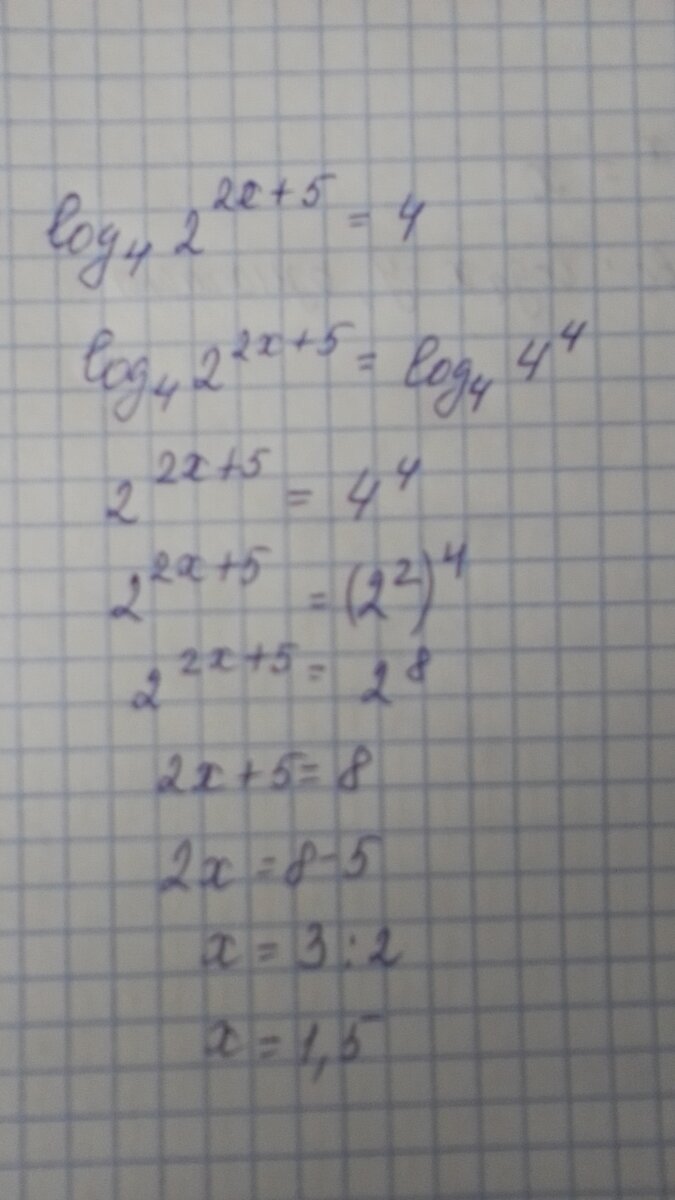 log₄ 2^(2x+5) = 4
log₄ 2^(2x+5) = log₄ 4⁴
2^(2x+5) = 4⁴
2^(2x+5) = (2²)⁴
2^(2x+5) = 2⁸
2x+5=8
2x=8-5
x=3:2
x=1,5